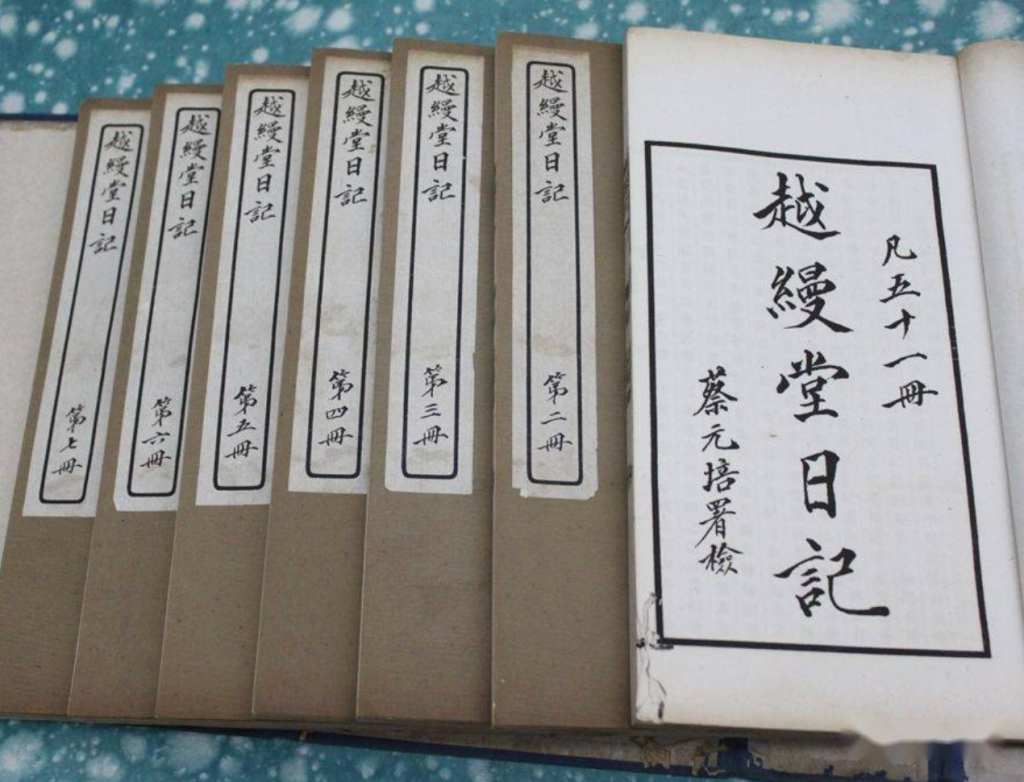 凡五十一冊
越縵堂日記
蔡元培署檢
越縵堂日記
第二冊
越縵堂日記
第三冊
越縵堂日記
第四冊
越縵堂日記
第五冊
越縵堂日記
第六冊
越縵堂日記
第七冊